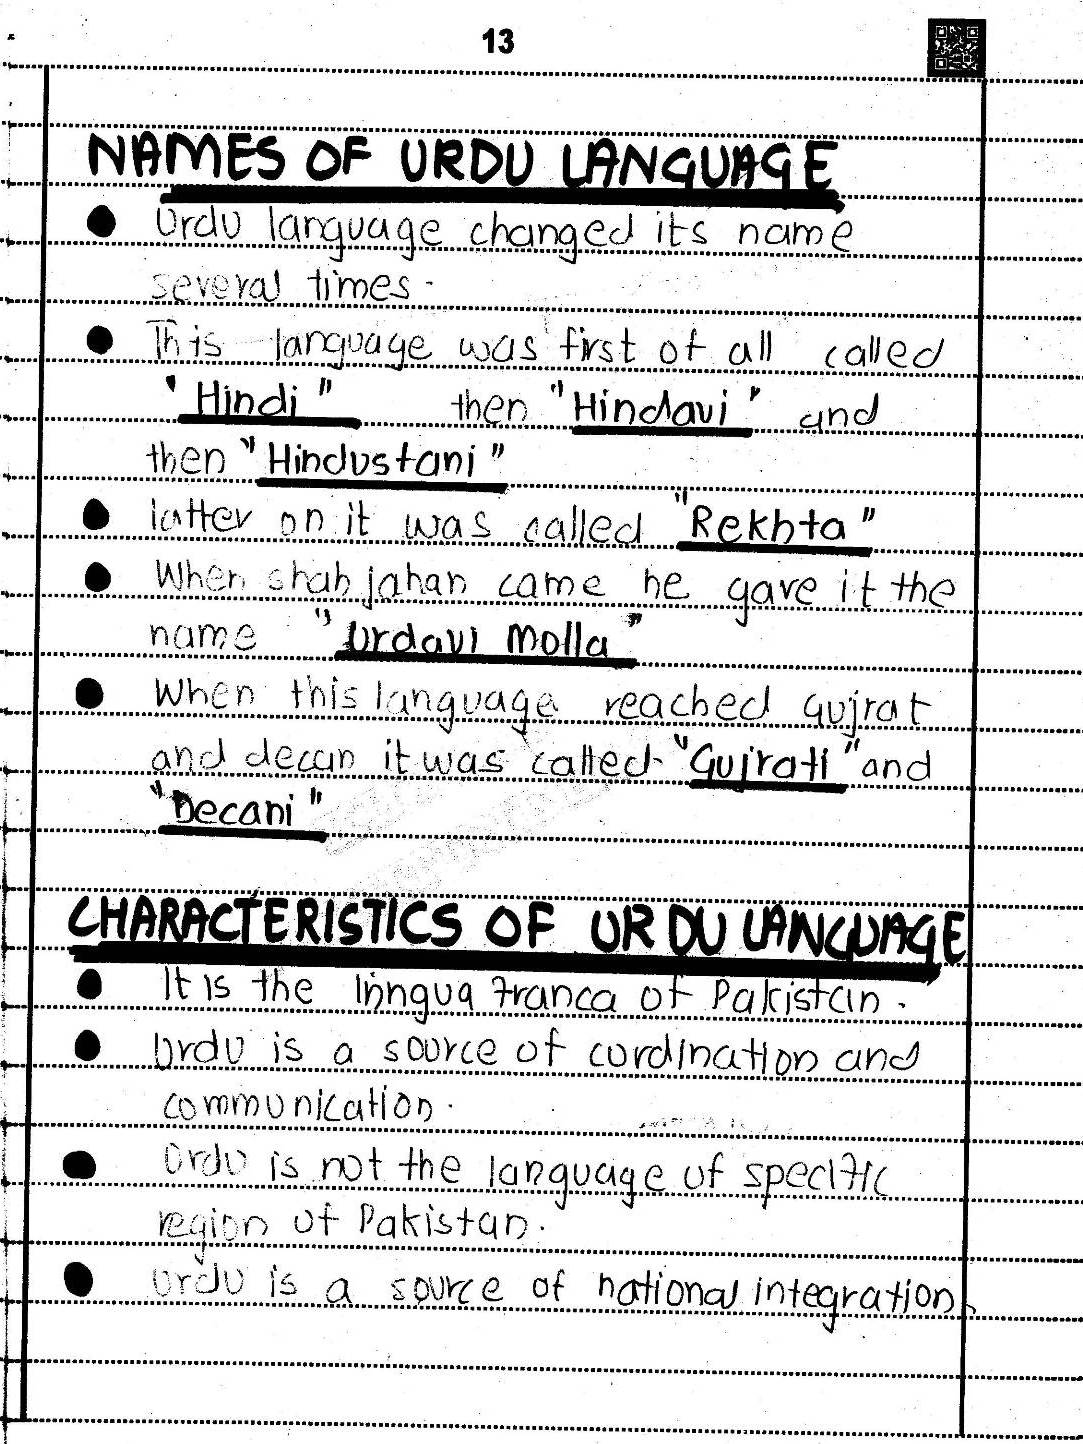 13
NAMES OF URDU LANGUAGE
Urdu language changed its name
several times.
This language was first of all called
"Hindi" then "Hindavi" and
then "Hindustani"
latter on it was called "Rekhta"
When shah jahan came he gave it the
name "Urdavi Molla"
When this language reached Gujrat
and decan it was called "Gujrati" and
"Decani"
CHARACTERISTICS OF URDU LANGUAGE
It is the lingua franca of Pakistan.
Urdu is a source of cordination and
communication.
Urdu is not the language of specific
region of Pakistan.
Urdu is a source of national integration.